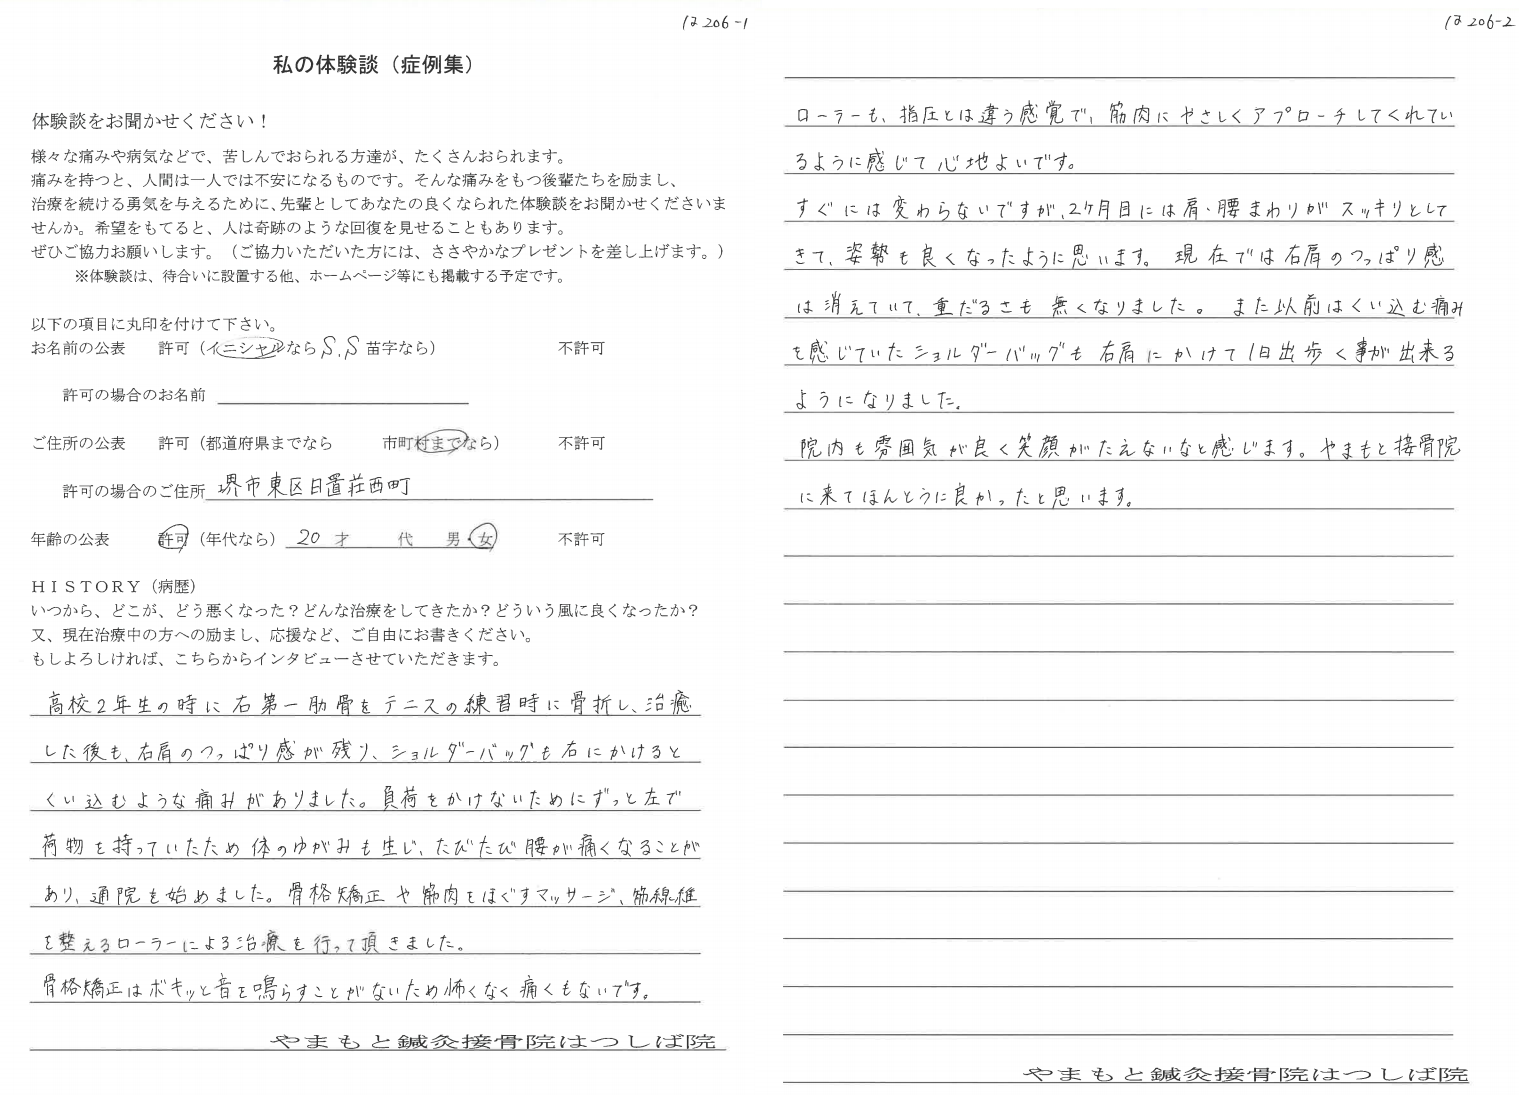 は206-1
私の体験談（症例集）
体験談をお聞かせください！
様々な痛みや病気などで、苦しんでおられる方達が、たくさんおられます。
痛みを持つと、人間は一人では不安になるものです。そんな痛みをもつ後輩たちを励まし、
治療を続ける勇気を与えるために、先輩としてあなたの良くなられた体験談をお聞かせくださいま
せんか。希望をもてると、人は奇跡のような回復を見せることもあります。
ぜひご協力お願いします。（ご協力いただいた方には、ささやかなプレゼントを差し上げます。）
※体験談は、待合いに設置する他、ホームページ等にも掲載する予定です。
以下の項目に丸印を付けて下さい。
お名前の公表 許可（イニシャルなら S.S 苗字なら） 不許可
許可の場合のお名前
ご住所の公表 許可（都道府県までなら 市町村までなら） 不許可
許可の場合のご住所 堺市東区日置荘西町
年齢の公表 許可（年代なら） 20 才 代 男・女 不許可
ＨＩＳＴＯＲＹ（病歴）
いつから、どこが、どう悪くなった？どんな治療をしてきたか？どういう風に良くなったか？
又、現在治療中の方への励まし、応援など、ご自由にお書きください。
もしよろしければ、こちらからインタビューさせていただきます。
高校2年生の時に右第一肋骨をテニスの練習時に骨折し、治癒
した後も、右肩のつっぱり感が残り、ショルダーバッグも右にかけると
くい込むような痛みがありました。負荷をかけないためにずっと左で
荷物を持っていたため体のゆがみも生じ、たびたび腰が痛くなることが
あり、通院を始めました。骨格矯正や筋肉をほぐすマッサージ、筋線維
を整えるローラーによる治療を行って頂きました。
骨格矯正はボキッと音を鳴らすことがないため怖くなく痛くもないです。
やまもと鍼灸接骨院はつしば院
は206-2
ローラーも、指圧とは違う感覚で、筋肉にやさしくアプローチしてくれてい
るように感じて心地よいです。
すぐには変わらないですが、2ケ月目には肩・腰まわりがスッキリとして
きて、姿勢も良くなったように思います。現在では右肩のつっぱり感
は消えていて、重だるさも無くなりました。また以前はくい込む痛み
を感じていたショルダーバッグも右肩にかけて1日出歩く事が出来る
ようになりました。
院内も雰囲気が良く笑顔がたえないなと感じます。やまもと接骨院
に来てほんとうに良かったと思います。
やまもと鍼灸接骨院はつしば院